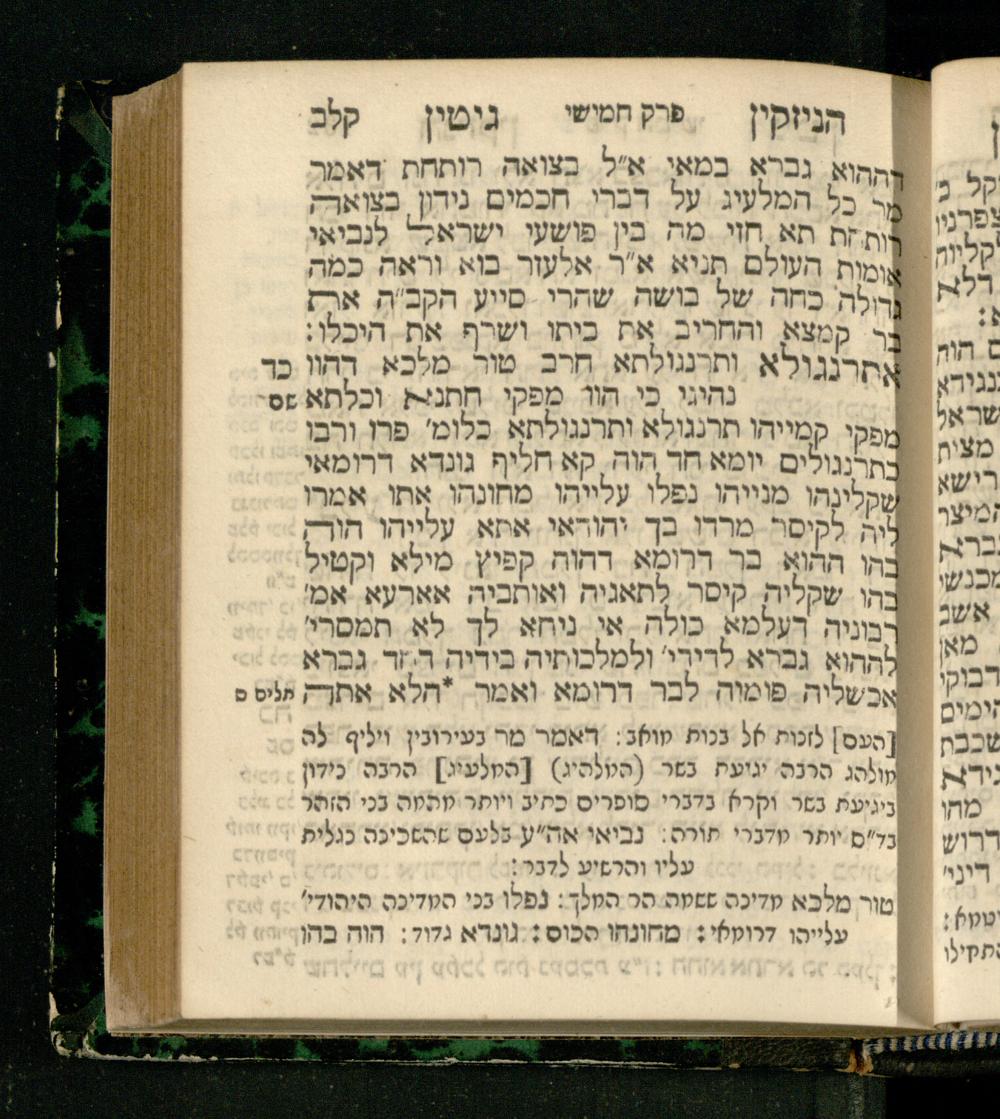 הניזקין פרק חמישי גיטין קלב
דההוא גברא במאי א״ל בצואה רותחת דאמר
מר כל המלעיג על דברי חכמים נידון בצואה
רותחת תא חזי מה בין פושעי ישראל לנביאי
אומות העולם תניא א״ר אלעזר בוא וראה כמה
גדולה כחה של בושה שהרי סייע הקב״ה את
בר קמצא והחריב את ביתו ושרף את היכלו:
אתרנגולא ותרנגולתא חרב טור מלכא דהוו כד
נהיגי כי הוו מפקי חתנא וכלתא שם
מפקי קמייהו תרנגולא ותרנגולתא כלומ׳ פרו ורבו
כתרנגולים יומא חד הוה קא חליף גונדא דרומאי
שקלינהו מנייהו נפלו עלייהו מחונהו אתו אמרו
ליה לקיסר מרדו בך יהודאי אתא עלייהו הוה
בהו ההוא בר דרומא דהוה קפיץ מילא וקטיל
בהו שקליה קיסר לתאגיה ואותביה אארעא אמ׳
רבוניה דעלמא כולה אי ניחא לך לא תמסרי׳
לההוא גברא לדידי׳ ולמלכותיה בידיה דחד גברא
אכשליה פומיה לבר דרומא ואמר *הלא אתה תלים ס
[העם] לזכות אל בנות מואב: דאמר מר בעירובין ויליף לה
מולהג הרבה יגיעת בשר (המלהיג) [המלעיג] הרבה כידון
ביגיעת בשר וקרא בדברי סופרים כתיב ויותר מהמה בני הזהר
בד״ס יותר מדברי תורה: נביאי אה״ע בלעם שהשכינה נגלית
עליו והרשיע לדבר:
טור מלכא מדינה ששמה הר המלך: נפלו בני המדינה היהודי׳
עלייהו דרומאי: מחונהו הכוס: גונדא גדוד: הוה בהו